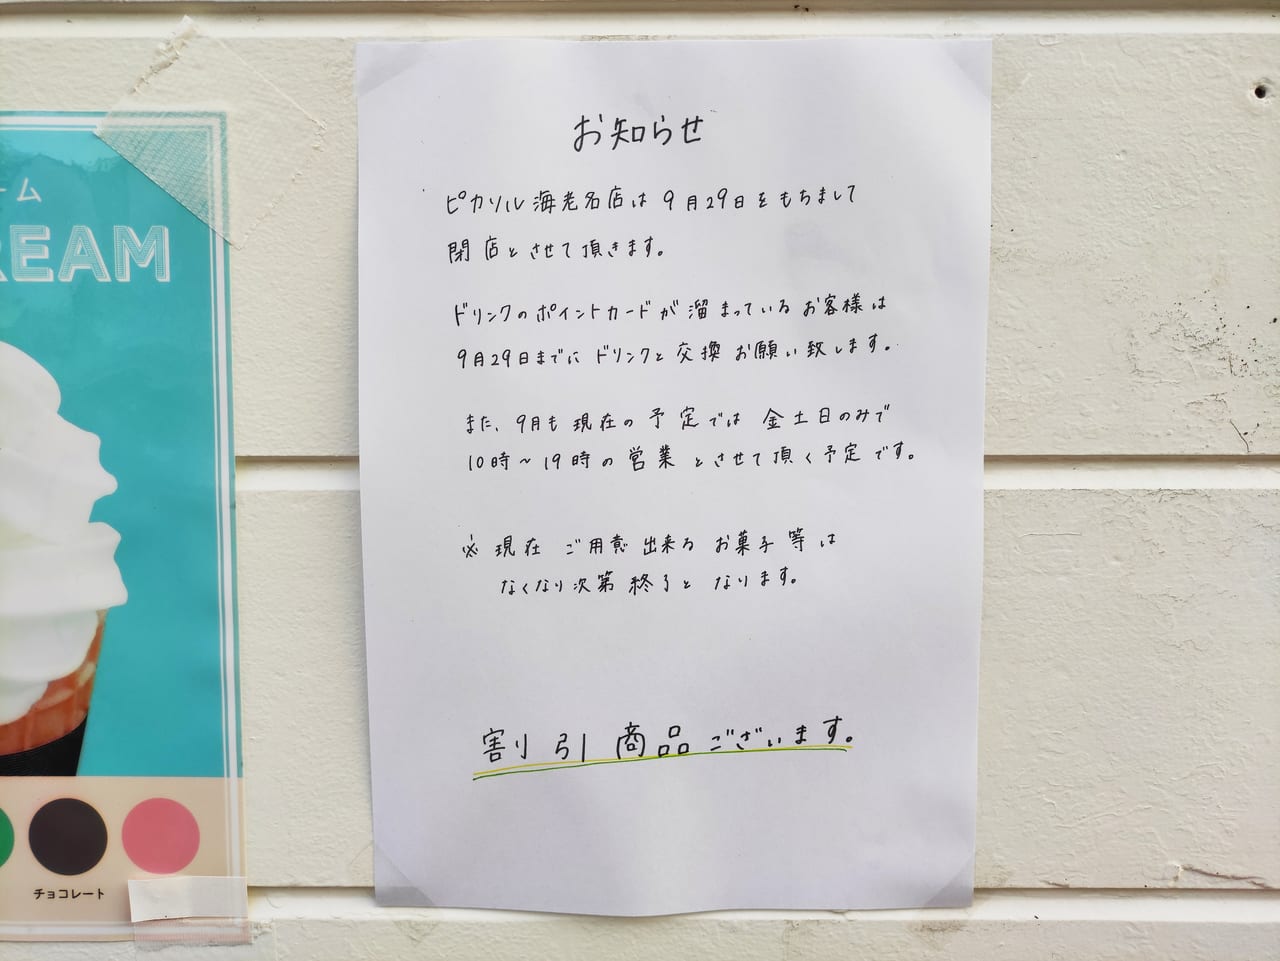 ーム
REAM
チョコレート
お知らせ
ピカソル海老名店は9月29日をもちまして
閉店とさせて頂きます。
ドリンクのポイントカードが溜まっているお客様は
9月29日までにドリンクと交換お願い致します。
また、9月も現在の予定では金土日のみで
10時～19時の営業とさせて頂く予定です。
※現在ご用意出来るお菓子等は
なくなり次第終了となります。
割り引商品ございます。